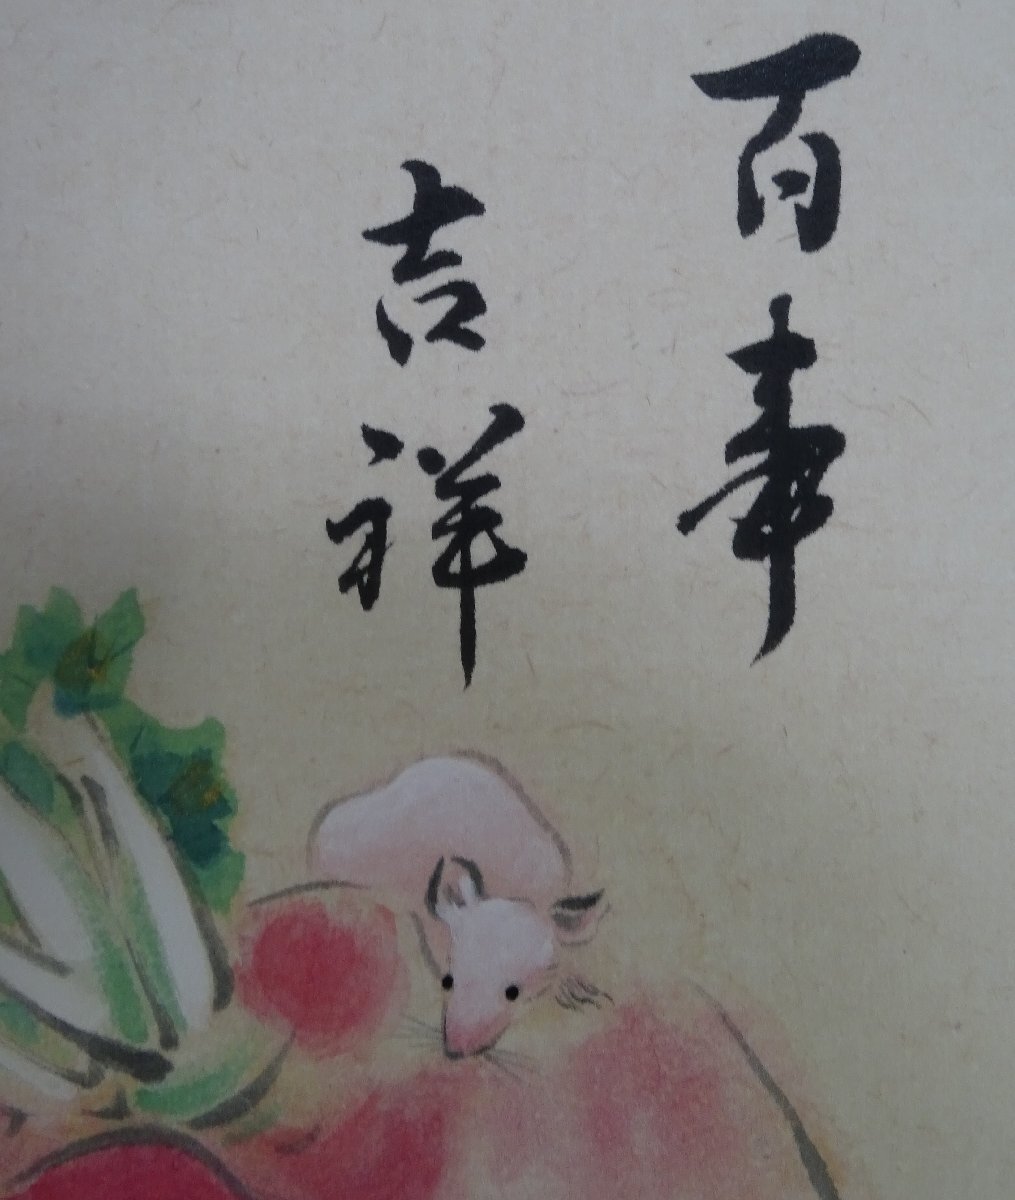 百事
吉祥